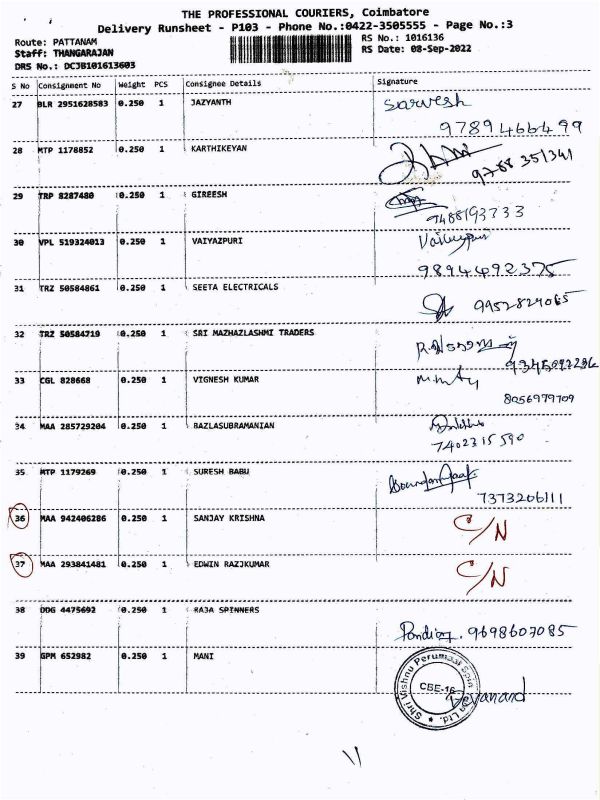 THE PROFESSIONAL COURIERS, Coimbatore
Delivery Runsheet - P103 - Phone No.:0422-3505555 - Page No.:3
Route: PATTANAM RS No.: 1016136
Staff: THANGARAJAN RS Date: 08-Sep-2022
DRS No.: DCJB101613603
S No Consignment No Weight PCS Consignee Details Signature
27 BLR 2951628583 0.250 1 JAZYANTH sarvesh
9789466499
28 MTP 1178852 0.250 1 KARTHIKEYAN
9788 351341
29 TRP 8287480 0.250 1 GIREESH
9488193733
30 VPL 519324013 0.250 1 VAIYAZPURI
9894492375
31 TRZ 50584861 0.250 1 SEETA ELECTRICALS
9952829065
32 TRZ 50584719 0.250 1 SRI MAZHAZLASHMI TRADERS
9345092236
33 CGL 828668 0.250 1 VIGNESH KUMAR
8056979709
34 MAA 285729204 0.250 1 BAZLASUBRAMANIAN
7402315590
35 MTP 1179269 0.250 1 SURESH BABU
7373206111
36 MAA 942406286 0.250 1 SANJAY KRISHNA C/N
37 MAA 293841481 0.250 1 EDWIN RAZJKUMAR C/N
38 DDG 4475692 0.250 1 RAJA SPINNERS
9698607085
39 GPM 652982 0.250 1 MANI
Shri Vishnu Perumaal Spin Ltd.
CBE-16
Devanand